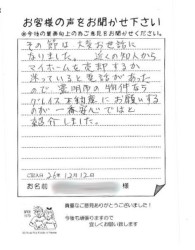 お客様の声をお聞かせ下さい
その節は大変お世話に
なりました。 近くの知人から
マイホームを売却するか
迷っていると電話があった
ので、豊明市の物件なら
グレイス不動産にお願いする
のが一番安心ではと
紹介しました。
26年12月12日
お名前 様
貴重なご意見ありがとうございました！
今後も頑張りますので
宜しくお願い致します